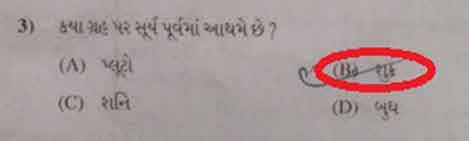 3) કયા ગ્રહ પર સૂર્ય પૂર્વમાં આથમે છે ?
(A) પ્લૂટો (B) શુક્ર
(C) શનિ (D) બુધ